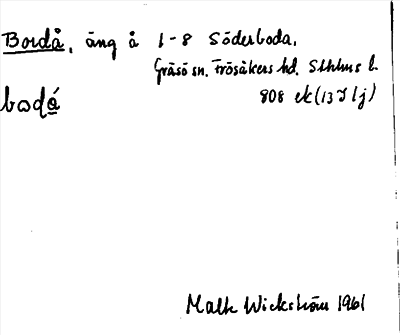 Bordå, äng å 1-8 Söderboda,
Gräsö sn. Frösåkers hd. Sthlms l.
808 ek (13 I 1j)
bωdá̱
Malte Wickström 1961